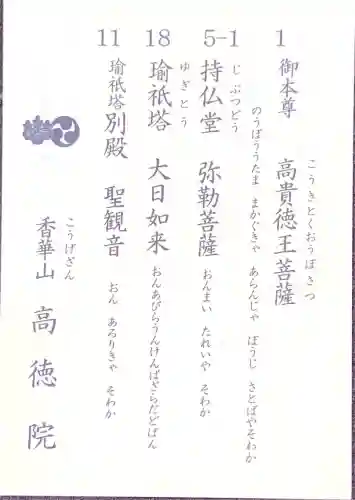 1 御本尊 高貴徳王菩薩
こうきとくおうぼさつ
のうぼううたま まかぐきゃ あらんじゃ ぼうじ さとばやそわか
5-1 持仏堂 弥勒菩薩 おんまい たれいや そわか
じぶつどう
18 瑜祇塔 大日如来 おんあびらうんけんばざらだどばん
ゆぎとう
11 瑜祇塔別殿 聖観音 おん あるりきゃ そわか
香華山 高徳院
こうげざん